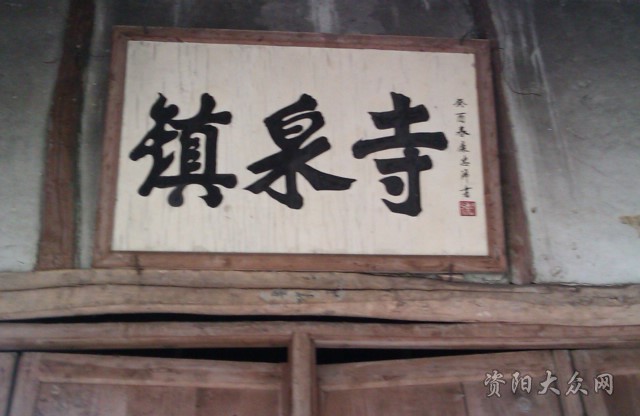 镇泉寺
癸酉春
书
资阳大众网